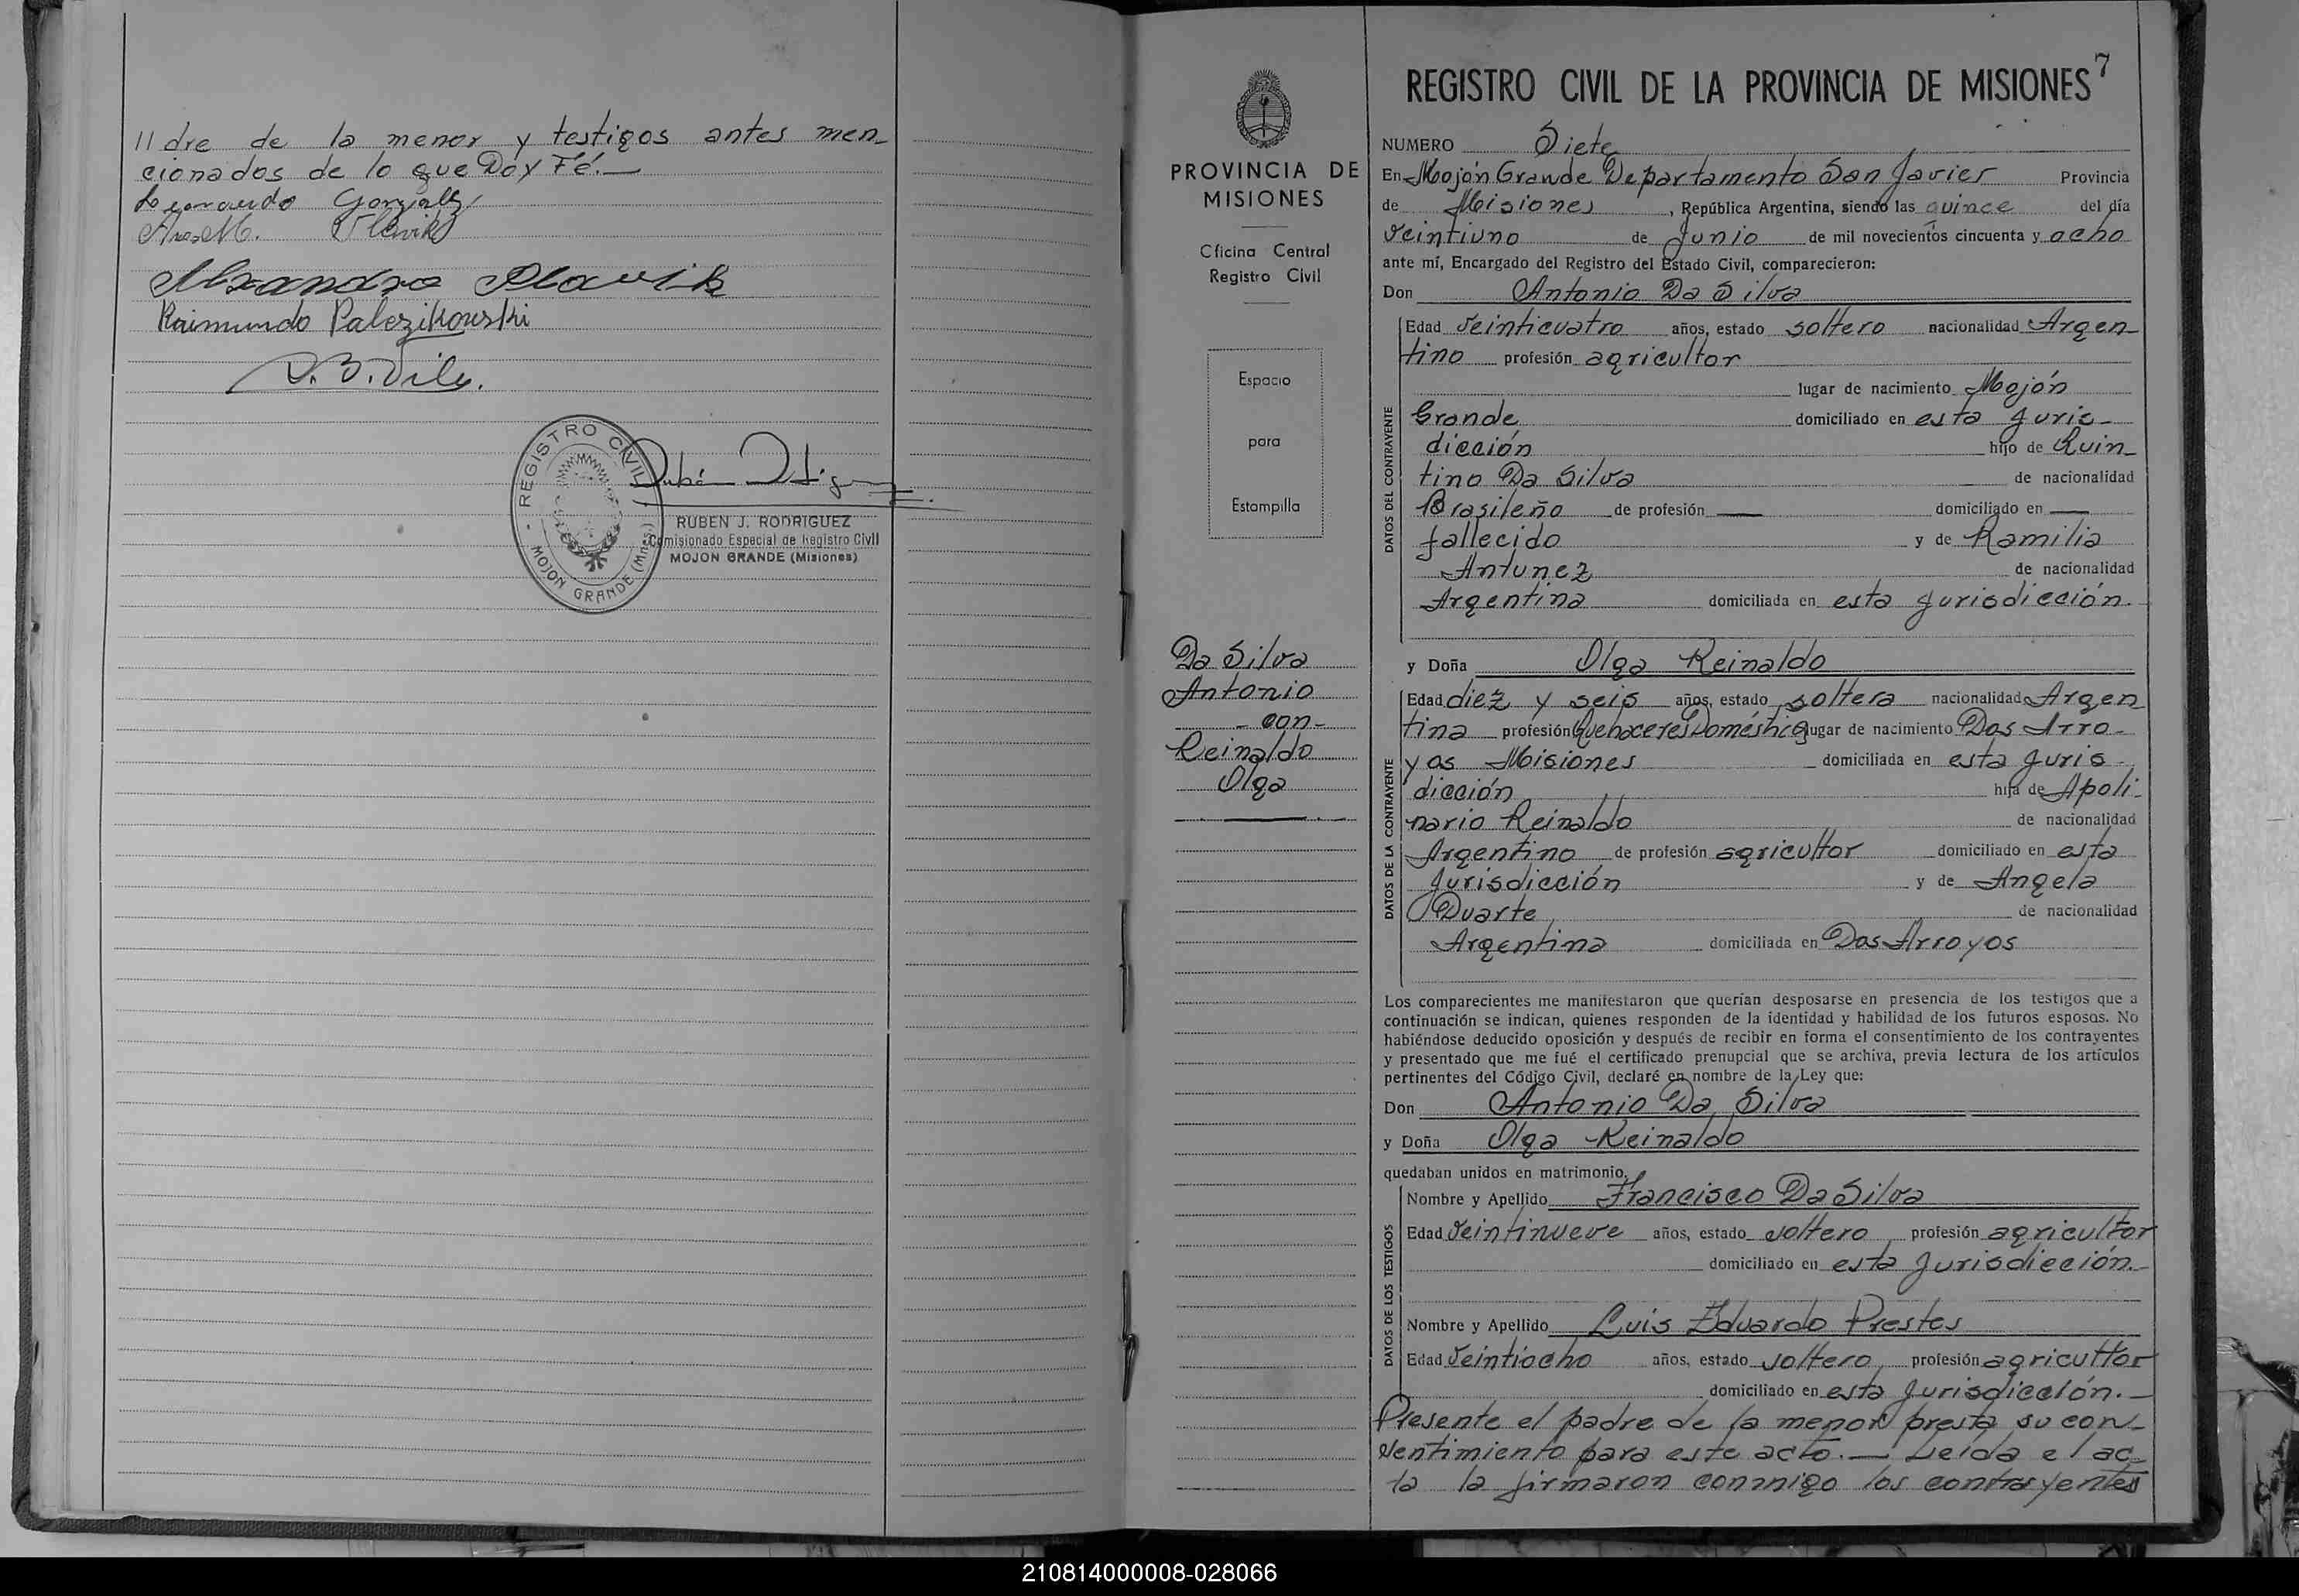 //dre de la menor y testigos antes men_
cionados de lo que Doy Fé._
Leonardo Gonzalez
Ana M. Slavik
Alexandro Slavik
Raimundo Palczikowski
REGISTRO CIVIL
MOJON GRANDE (Mnes.)
RUBEN J. RODRIGUEZ
Comisionado Especial de Registro Civil
MOJON GRANDE (Misiones)
PROVINCIA DE
MISIONES
Oficina Central
Registro Civil
Espacio
para
Estampilla
Da Silva
Antonio
-con-
Reinaldo
Olga
7
REGISTRO CIVIL DE LA PROVINCIA DE MISIONES
NUMERO Siete
En Mojón Grande Departamento San Javier Provincia
de Misiones, República Argentina, siendo las quince del día
veintiuno de Junio de mil novecientos cincuenta y ocho
ante mí, Encargado del Registro del Estado Civil, comparecieron:
Don Antonio Da Silva
DATOS DEL CONTRAYENTE
Edad veinticuatro años, estado soltero nacionalidad Argen_
tino profesión agricultor
lugar de nacimiento Mojón
Grande domiciliado en esta juris_
dicción hijo de Quin_
tino Da Silva de nacionalidad
Brasileño de profesión — domiciliado en —
fallecido y de Ramilia
Antunez de nacionalidad
Argentina domiciliada en esta jurisdicción.
y Doña Olga Reinaldo
DATOS DE LA CONTRAYENTE
Edad diez y seis años, estado soltera nacionalidad Argen
tina profesión Quehaceres Domésticos lugar de nacimiento Dos Arro-
yos Misiones domiciliada en esta juris-
dicción hija de Apoli_
nario Reinaldo de nacionalidad
Argentino de profesión agricultor domiciliado en esta
jurisdicción y de Angela
Duarte de nacionalidad
Argentina domiciliada en Dos Arroyos
Los comparecientes me manifestaron que querían desposarse en presencia de los testigos que a
continuación se indican, quienes responden de la identidad y habilidad de los futuros esposos. No
habiéndose deducido oposición y después de recibir en forma el consentimiento de los contrayentes
y presentado que me fué el certificado prenupcial que se archiva, previa lectura de los artículos
pertinentes del Código Civil, declaré en nombre de la Ley que:
Don Antonio Da Silva
y Doña Olga Reinaldo
quedaban unidos en matrimonio.
DATOS DE LOS TESTIGOS
Nombre y Apellido Francisco Da Silva
Edad veintinueve años, estado soltero profesión agricultor
domiciliado en esta jurisdicción.
Nombre y Apellido Luis Eduardo Prestes
Edad veintiocho años, estado soltero, profesión agricultor
domiciliado en esta jurisdicción._
Presente el padre de la menor presta su con_
sentimiento para este acto._ Leida el ac_
ta la firmaron conmigo los contrayentes
210814000008-028066